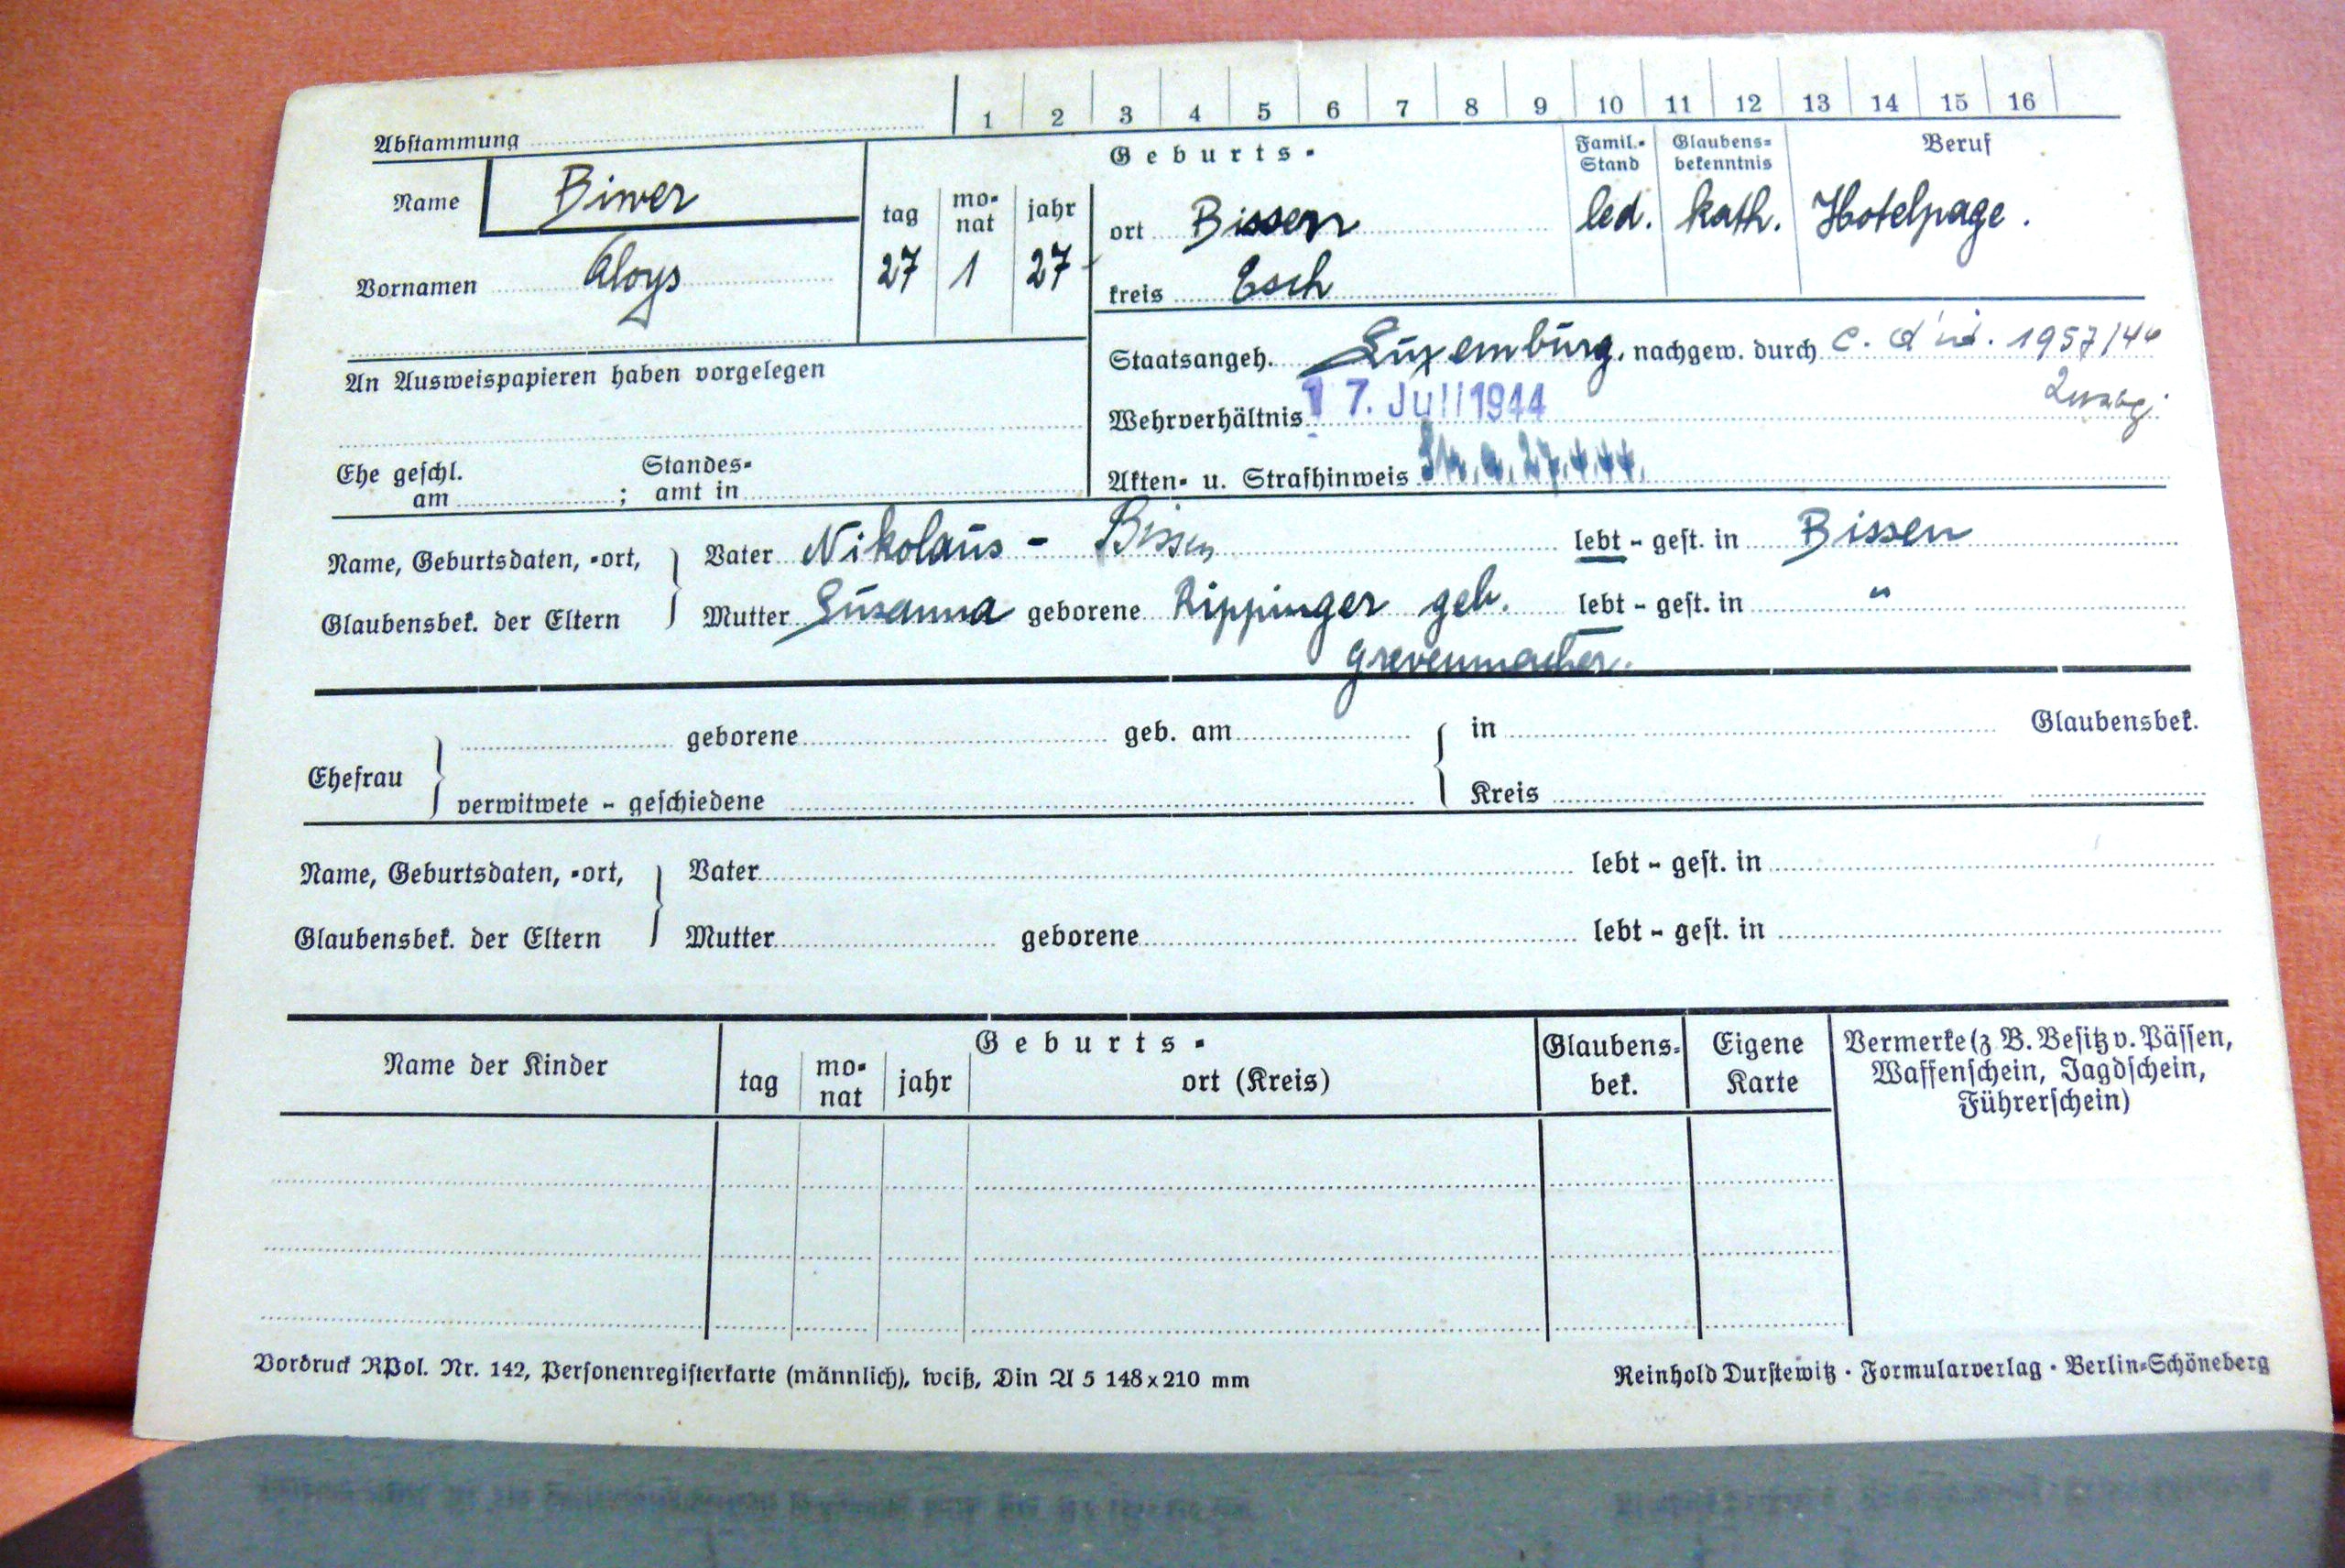 1 2 3 4 5 6 7 8 9 10 11 12 13 14 15 16
Abstammung
Name Biwer
Vornamen Aloys
Geburts-
tag mo-nat jahr
27 1 27
ort Bissen
kreis Esch
Famil.-Stand
led.
Glaubens-bekenntnis
kath.
Beruf
Hotelpage.
An Ausweispapieren haben vorgelegen
Ehe geschl. am ; Standes-amt in
Staatsangeh. Luxemburg, nachgew. durch c. d'id. 1957/44
Wehrverhältnis 17. Juli 1944
Akten- u. Strafhinweis 27.4.44.
Name, Geburtsdaten, -ort,
Glaubensbek. der Eltern
Vater Nikolaus - Bissen lebt - gest. in Bissen
Mutter Susanna geborene Rippinger geb. lebt - gest. in "
Grevenmacher.
Ehefrau
geborene geb. am in Glaubensbek.
verwitwete - geschiedene Kreis
Name, Geburtsdaten, -ort,
Glaubensbek. der Eltern
Vater lebt - gest. in
Mutter geborene lebt - gest. in
Name der Kinder
Geburts-
tag mo-nat jahr ort (Kreis)
Glaubens-bek.
Eigene Karte
Vermerke (z. B. Besitz v. Pässen,
Waffenschein, Jagdschein,
Führerschein)
Vordruck RPol. Nr. 142, Personenregisterkarte (männlich), weiß, Din A 5 148x210 mm
Reinhold Durstewitz · Formularverlag · Berlin-Schöneberg